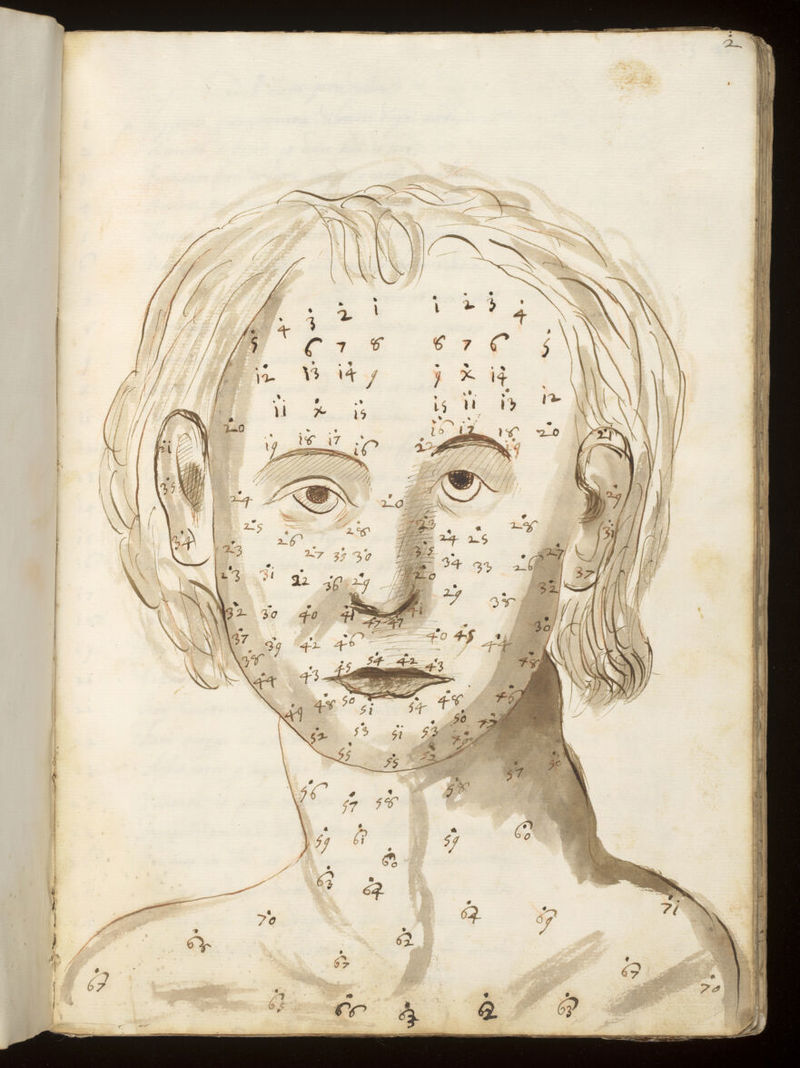 2
1 1 2 3 4
4 3 2
5 6 7 8 8 7 6 5
12 13 14 9 9 x 14
11 x 15 15 11 13 12
20 16 17 18 20
19 18 17 16 22 19 21
21
35 24 20 29
25 28 23 28 31
34 26 24 25
23 27 35 30 35 34 33 26 27
23 31 22 36 29 20 29 32 37
32 30 40 41 41 38
47 47 30
37 39 42 46 40 45 44
38 54 42 43 48
44 43 45
49 48 50 51 54 48 46
52 53 51 53 50
55 55
56 57 58 58 57
59 61 59 60
60
63 64
70 64 69 71
68 62
67 67 67 70
66 62 63